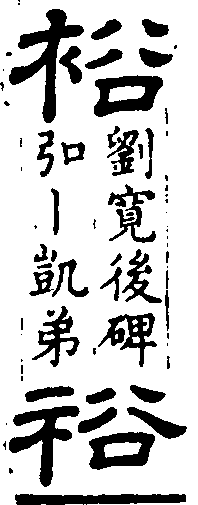 裕
劉寬後碑
弘丨凱弟
裕